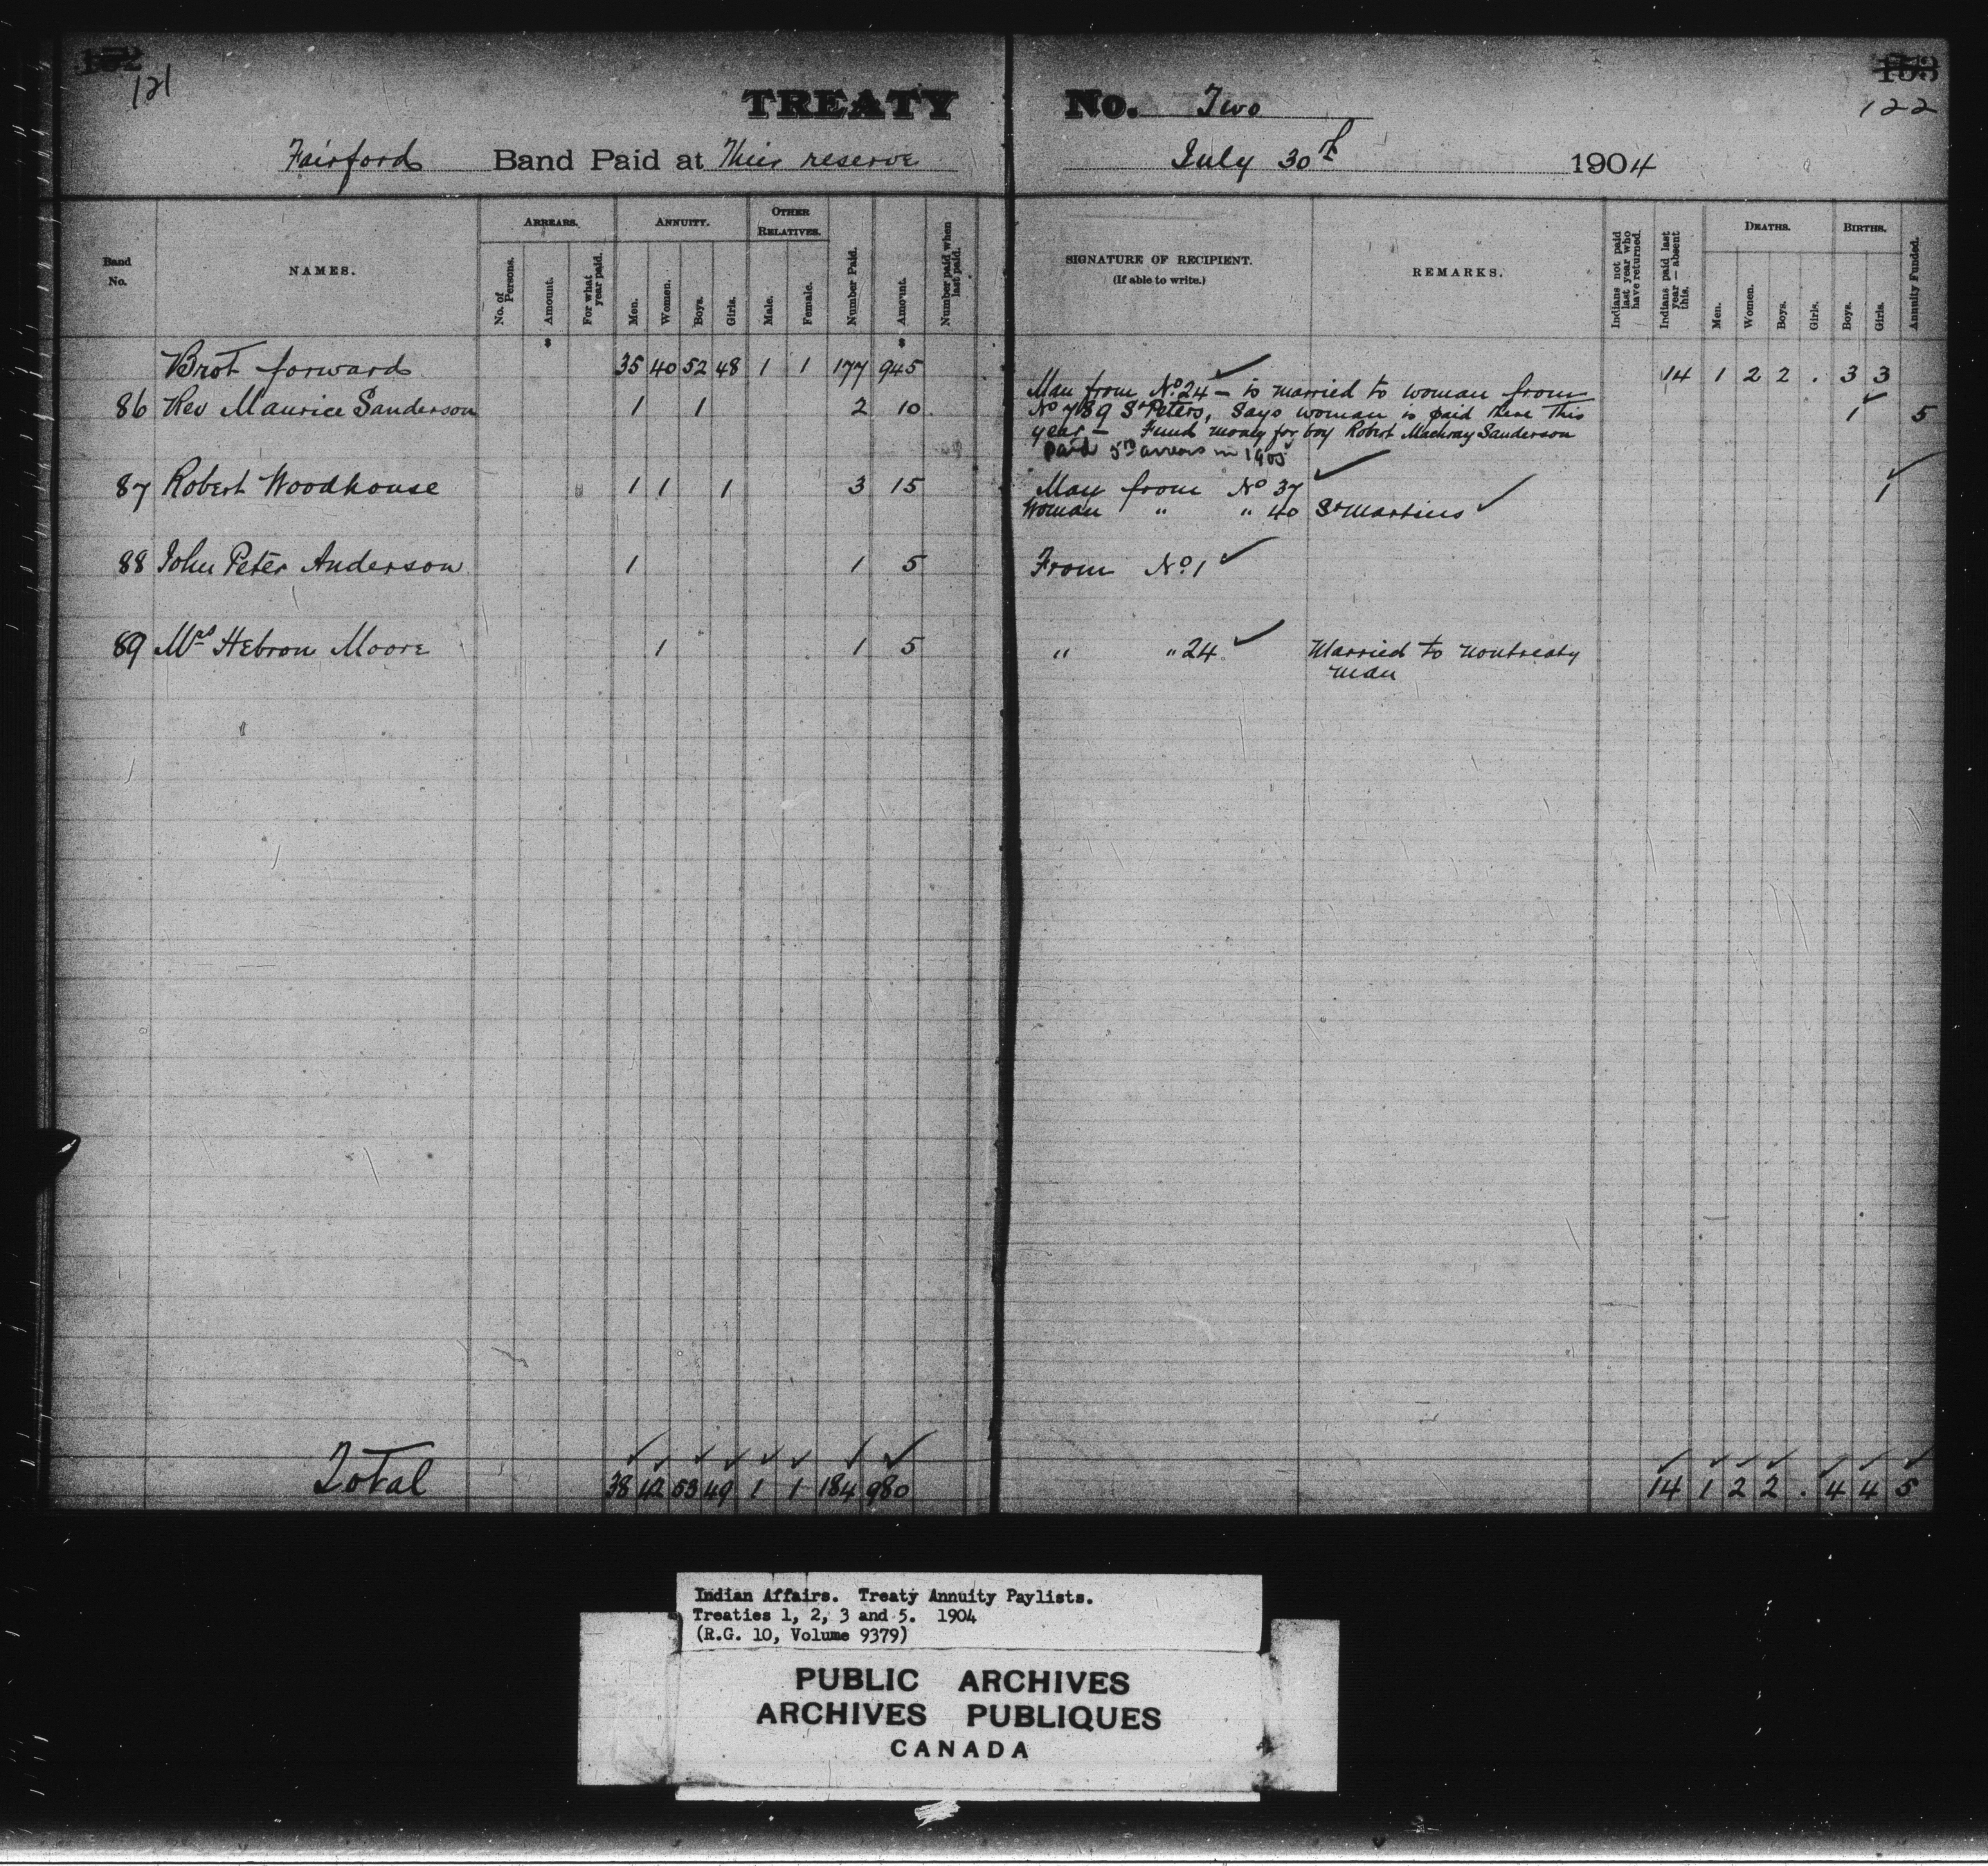 152
121
TREATY No. Two
153
122
Fairford Band Paid at Their reserve July 30th 1904
Band No.
NAMES.
ARREARS.
No. of Persons.
Amount.
For what year paid.
ANNUITY.
Men.
Women.
Boys.
Girls.
OTHER RELATIVES.
Male.
Female.
Number Paid.
Amount.
Number paid when last paid.
SIGNATURE OF RECIPIENT.
(If able to write.)
REMARKS.
Indians not paid last year who have returned.
Indians paid last year — absent this.
DEATHS.
Men.
Women.
Boys.
Girls.
BIRTHS.
Boys.
Girls.
Annuity Funded.
$ $
Brot forward 35 40 52 48 1 1 177 945 14 1 2 2 . 3 3
86 Rev Maurice Sanderson 1 1 2 10 1 5
Man from No. 24 – is married to woman from
No 789 St Peters, Says woman is paid there this
year – Fund money for boy Robert Machray Sanderson
Paid 5.00 arrears in 1905
87 Robert Woodhouse 1 1 1 3 15 Man from No 37 1
Woman " " 40 St Martins
88 John Peter Anderson 1 1 5 From No. 1
89 Mrs Hebron Moore 1 1 5 " " 24 Married to nontreaty
man
Total 38 42 53 49 1 1 184 980 14 1 2 2 . 4 4 5
Indian Affairs. Treaty Annuity Paylists.
Treaties 1, 2, 3 and 5. 1904
(R.G. 10, Volume 9379)
PUBLIC ARCHIVES
ARCHIVES PUBLIQUES
CANADA